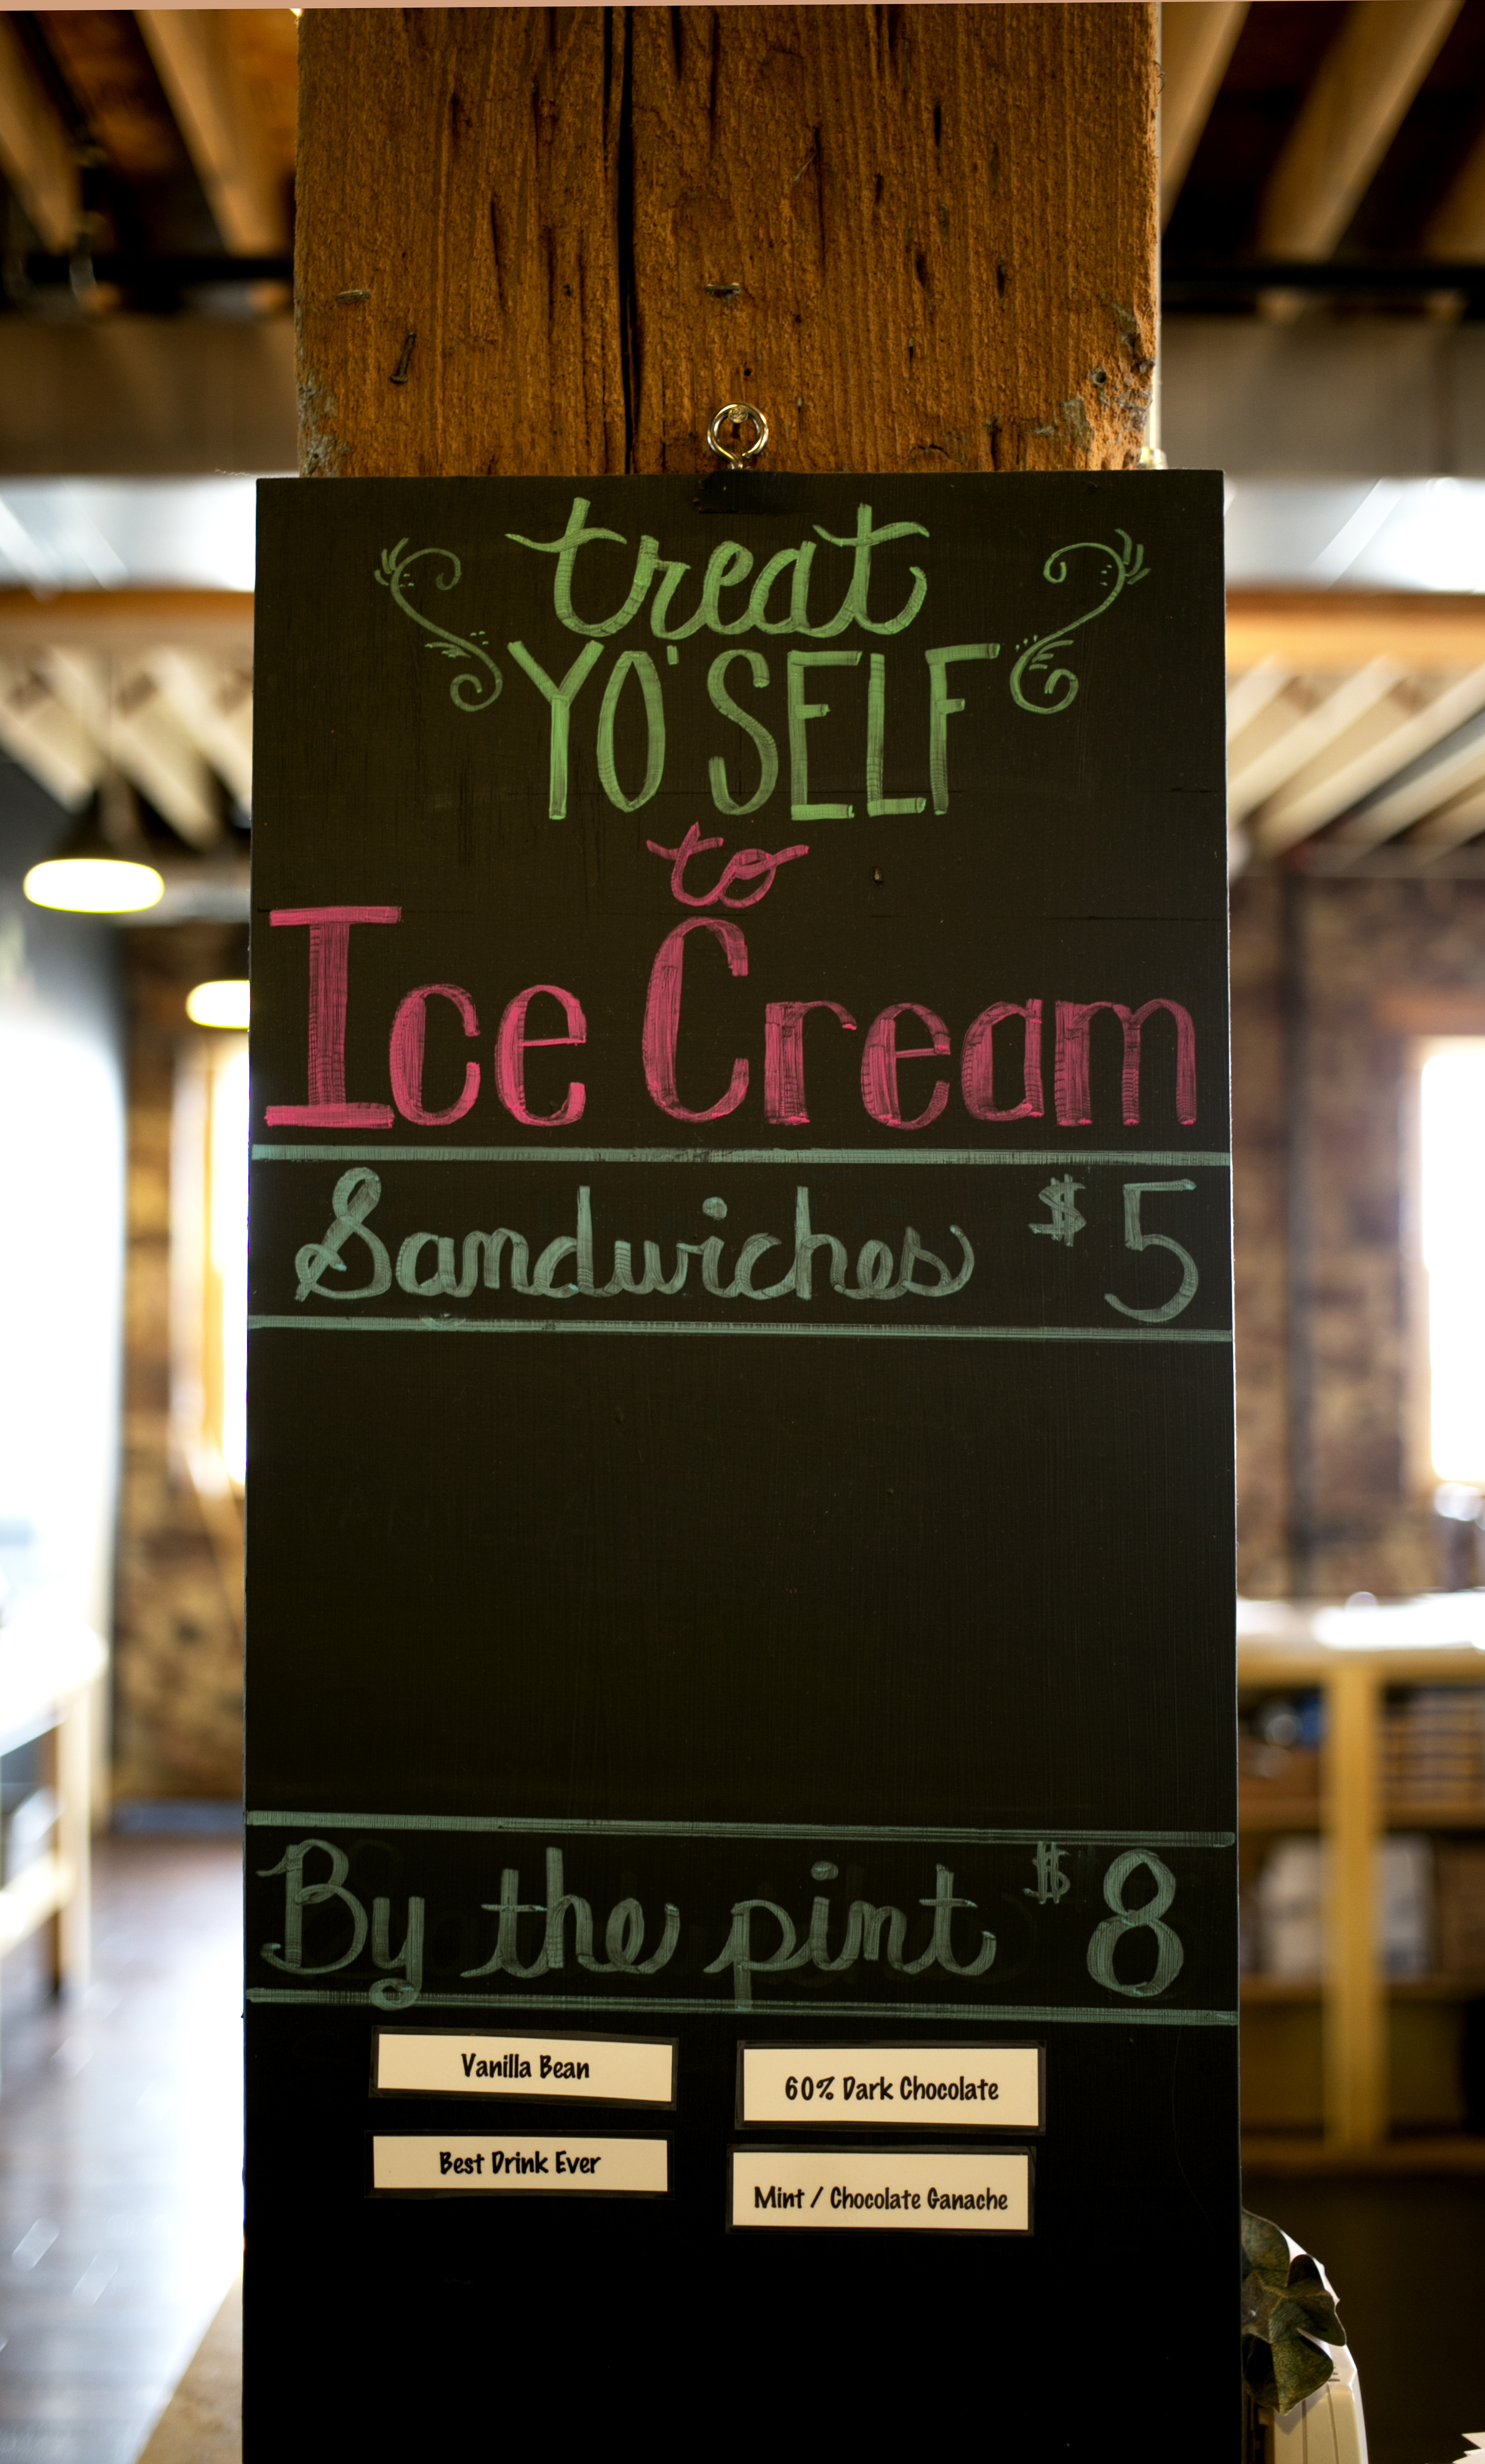 treat
YO'SELF
to
Ice Cream
Sandwiches $5
By the pint $8
Vanilla Bean
60% Dark Chocolate
Best Drink Ever
Mint / Chocolate Ganache